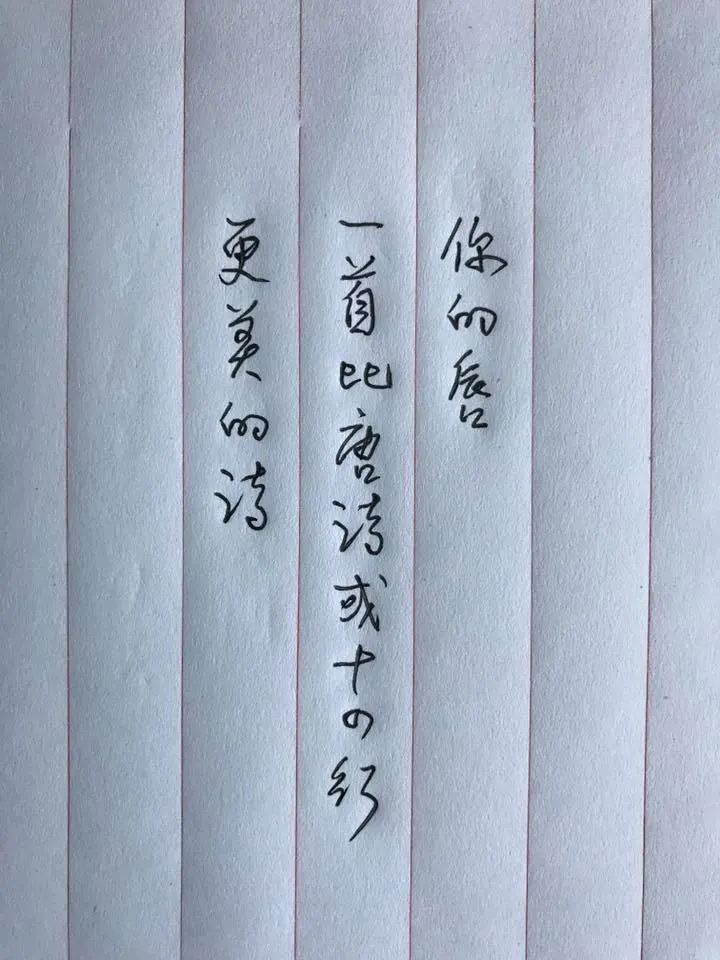 你的唇
一首比唐诗或十四行
更美的诗